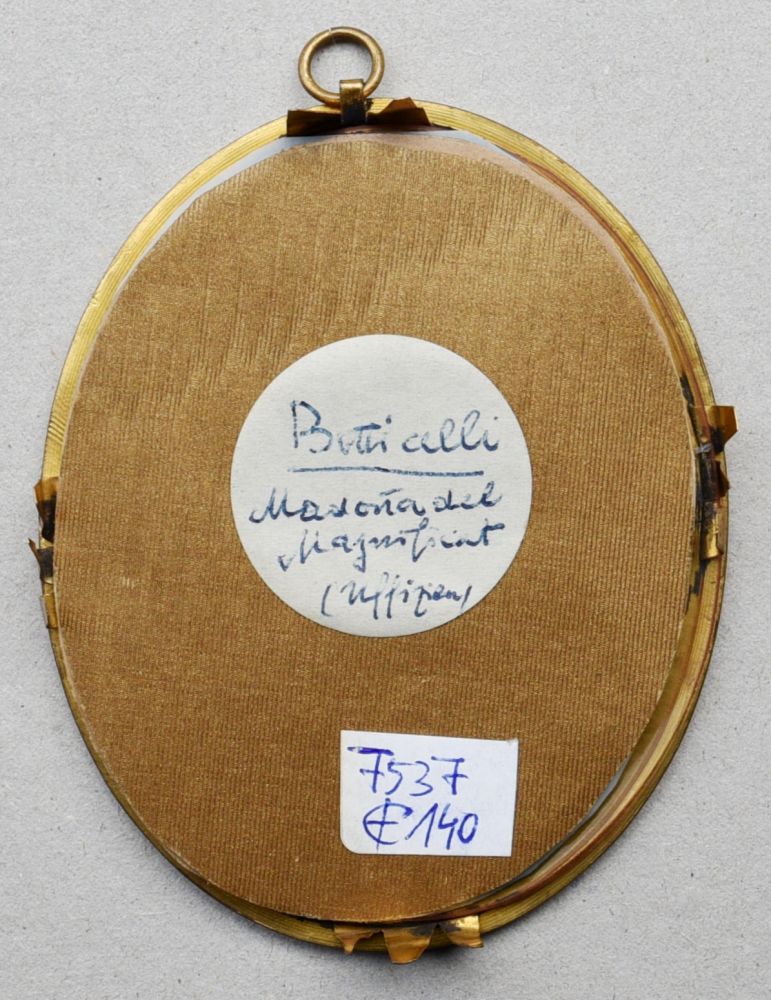 Botticelli
Madoña del
Magnificat
(Uffizien)
7537
€ 140